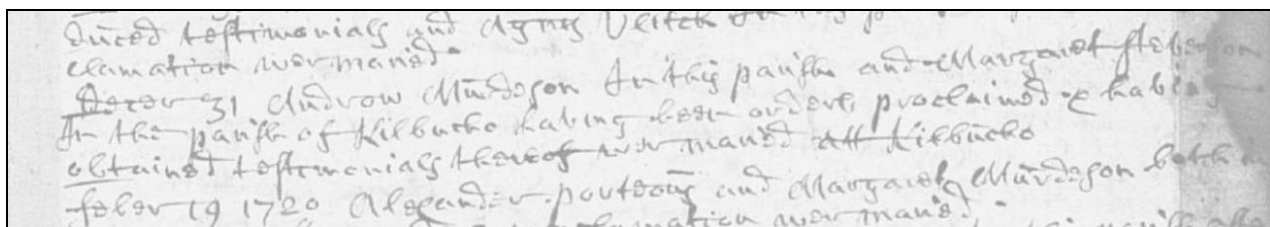 duced testimonials and Agnes Veitch
clamation wer maried
Decer 31 Androw Murdeson In this parish and Margaret Stevenson
In the parish of Kilbucho having been orderly proclaimed & having
obtained testimonials thereof wer maried att Kilbucho
feber 19 1720 Alexander porteous and Margaret Murdeson both in
clamation wer maried